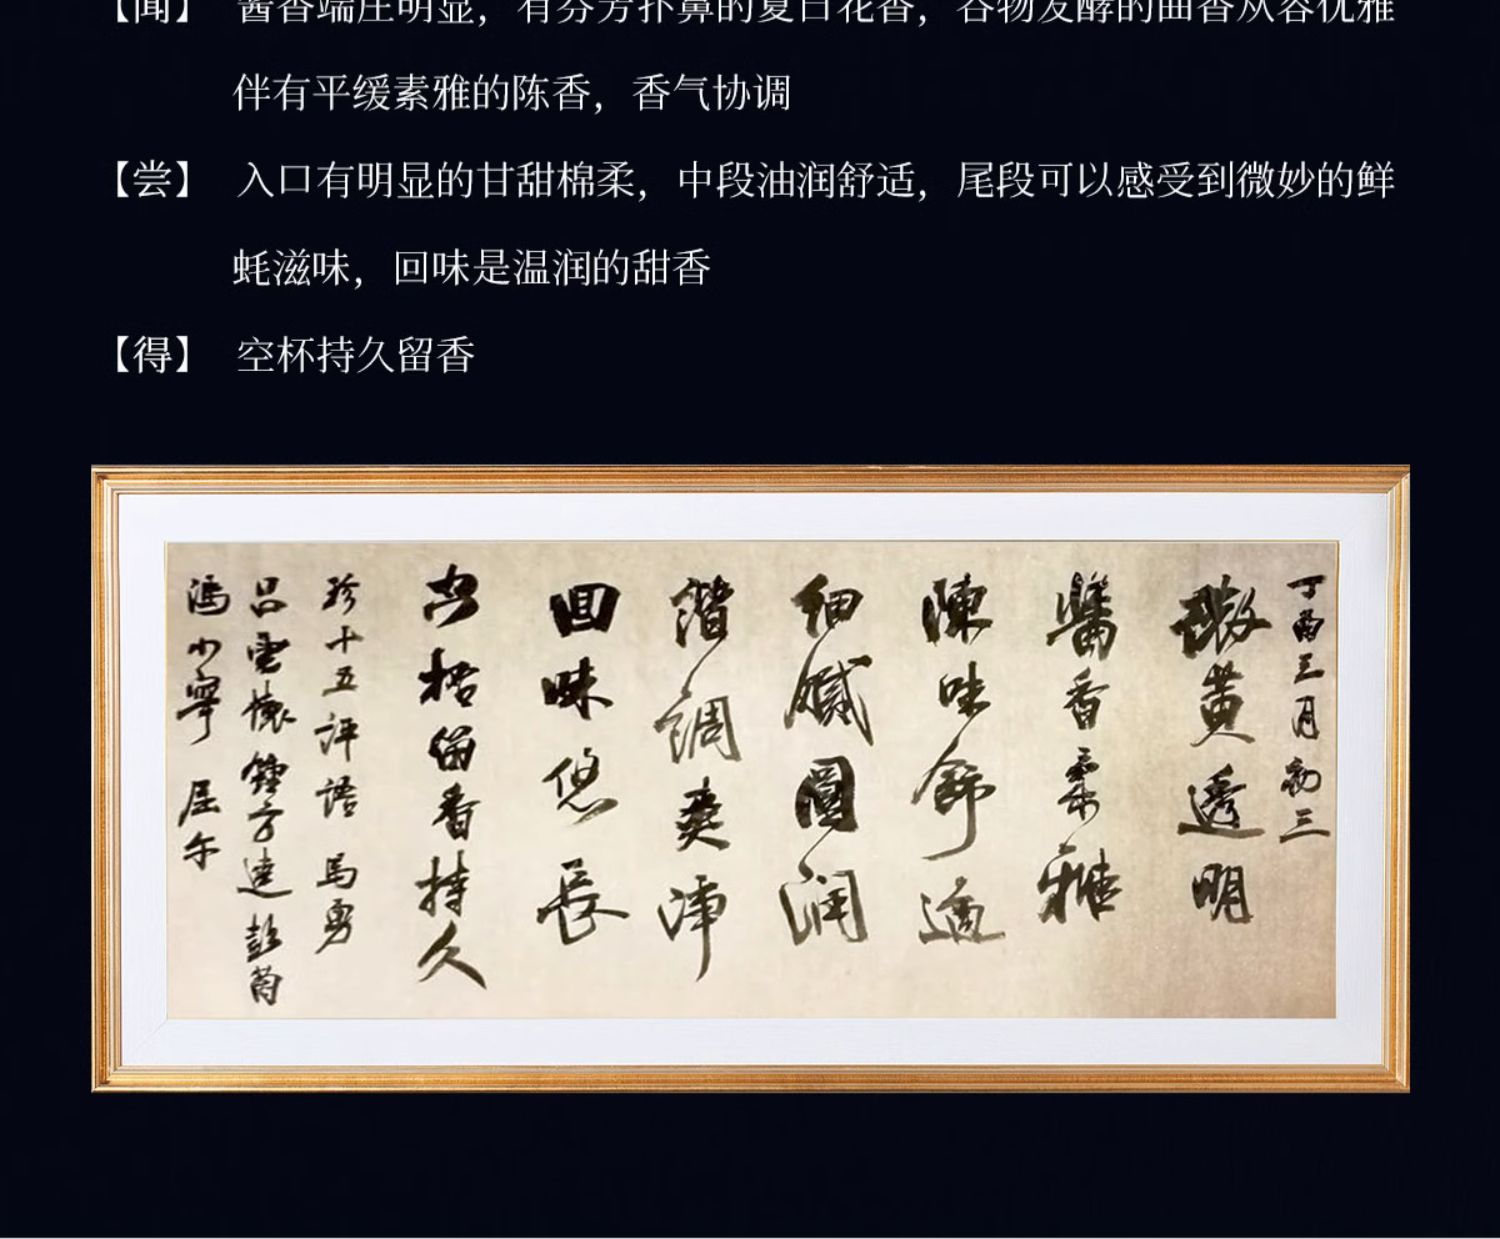 【闻】 酱香端庄明显，有芬芳扑鼻的夏日花香，谷物发酵的曲香从容优雅
伴有平缓素雅的陈香，香气协调
【尝】 入口有明显的甘甜棉柔，中段油润舒适，尾段可以感受到微妙的鲜
蚝滋味，回味是温润的甜香
【得】 空杯持久留香
丁酉三月初三
微黄透明
醬香柔雅
陳味舒適
细腻圓润
諧調爽净
回味悠長
空杯留香持久
珍十五评语 馬勇
吕雲懷 鍾方達 彭茵
馮小寧 屈乍